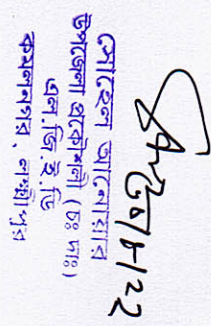 সোহেল আনোয়ার
উপজেলা প্রকৌশলী (চঃ দাঃ)
এল.জি.ই.ডি
কমলনগর, লক্ষ্মীপুর